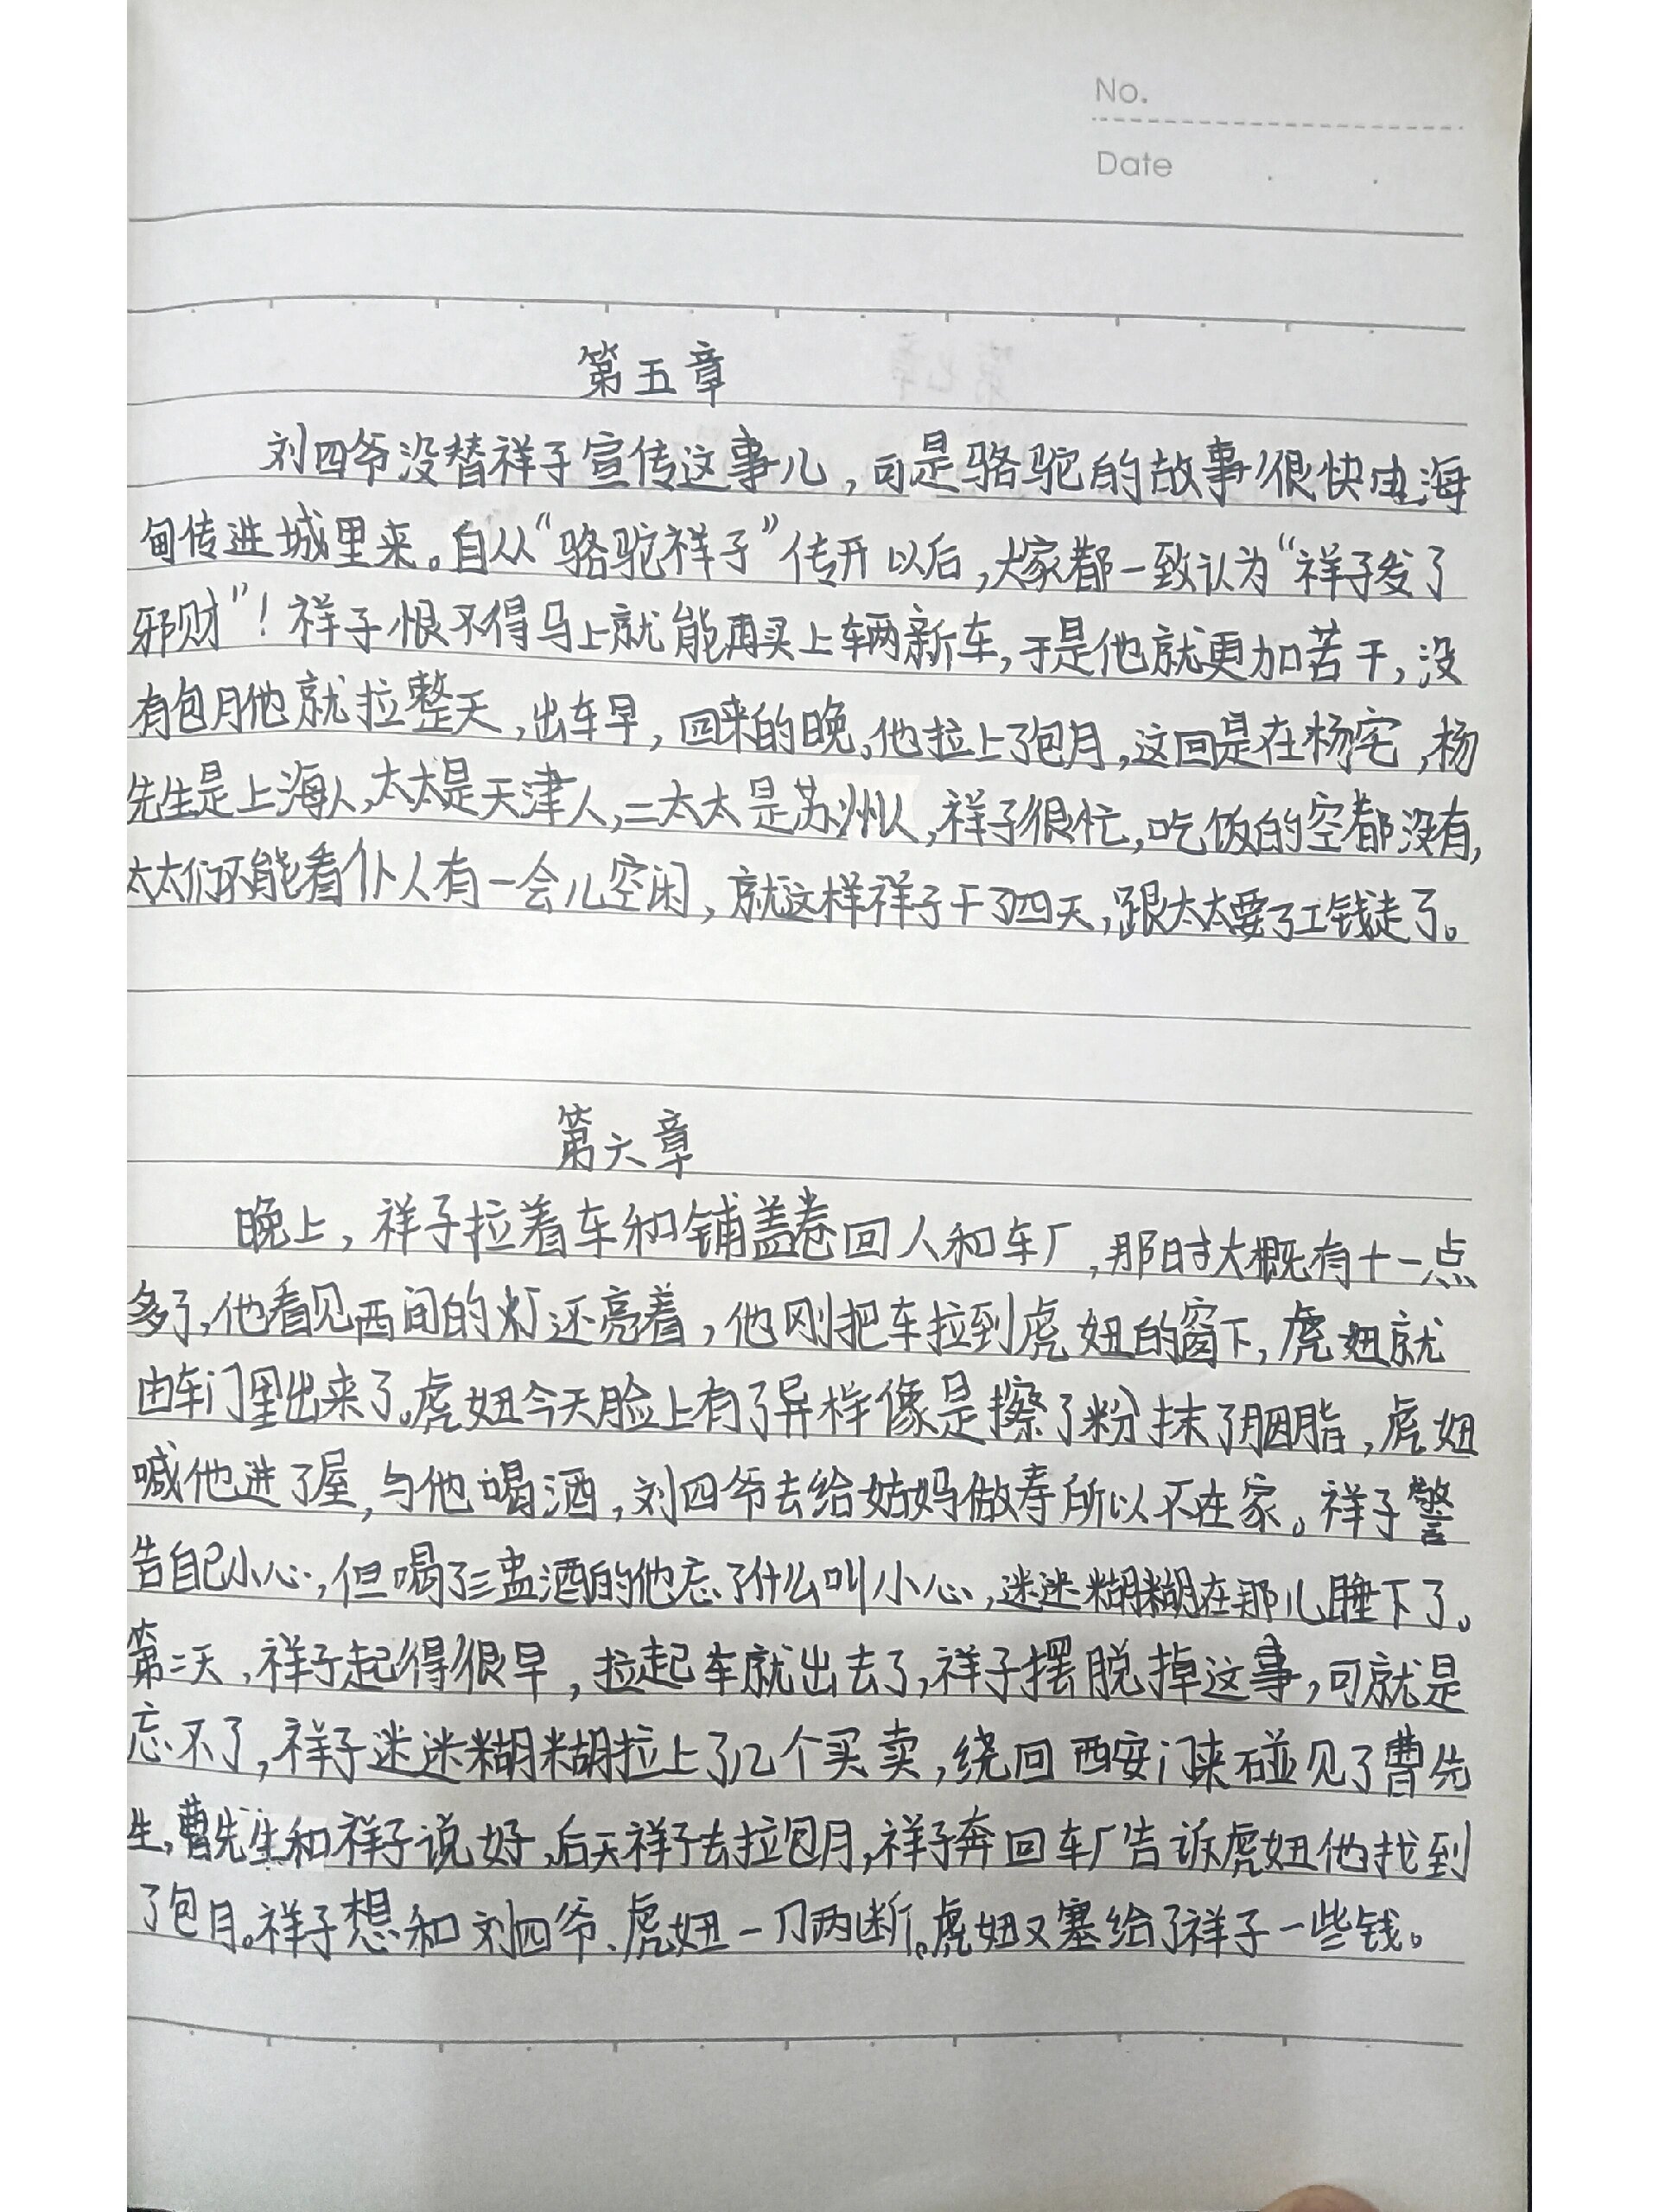 No.
Date
第五章
刘四爷没替祥子宣传这事儿，可是骆驼的故事很快由海
甸传进城里来。自从“骆驼祥子”传开以后，大家都一致认为“祥子发了
邪财”！祥子恨不得马上就能再买上辆新车，于是他就更加苦干，没
有包月他就拉整天，出车早，回来的晚。他拉上了包月，这回是在杨宅，杨
先生是上海人，太太是天津人，二太太是苏州人，祥子很忙，吃饭的空都没有，
太太们不能看仆人有一会儿空闲，就这样祥子干了四天，跟太太要了工钱走了。
第六章
晚上，祥子拉着车和铺盖卷回人和车厂，那时大概有十一点
多了，他看见西间的灯还亮着，他刚把车拉到虎妞的窗下，虎妞就
由车门里出来了。虎妞今天脸上有了异样像是擦了粉抹了胭脂，虎妞
喊他进了屋，与他喝酒，刘四爷去给姑妈做寿所以不在家。祥子警
告自己小心，但喝了三盅酒的他忘了什么叫小心，迷迷糊糊在那儿睡下了。
第二天，祥子起得很早，拉起车就出去了，祥子摆脱掉这事，可就是
忘不了，祥子迷迷糊糊拉上了几个买卖，绕回西安门来碰见了曹先
生，曹先生和祥子说好，后天祥子去拉包月，祥子奔回车厂告诉虎妞他找到
了包月。祥子想和刘四爷、虎妞一刀两断。虎妞又塞给了祥子一些钱。